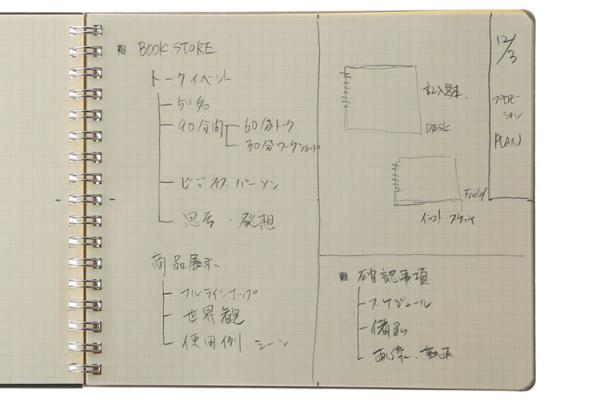 BOOK STORE
トークイベント
50名
90分間
60分トーク
30分ワークショップ
ビジネスパーソン
思考・発想
商品展示
フルラインナップ
世界観
使用例、シーン
記入見本.
DESK
Field
イラスト・スケッチ
確認事項
スケジュール
備品
画像、動画
12/3
プロモー
ション
PLAN